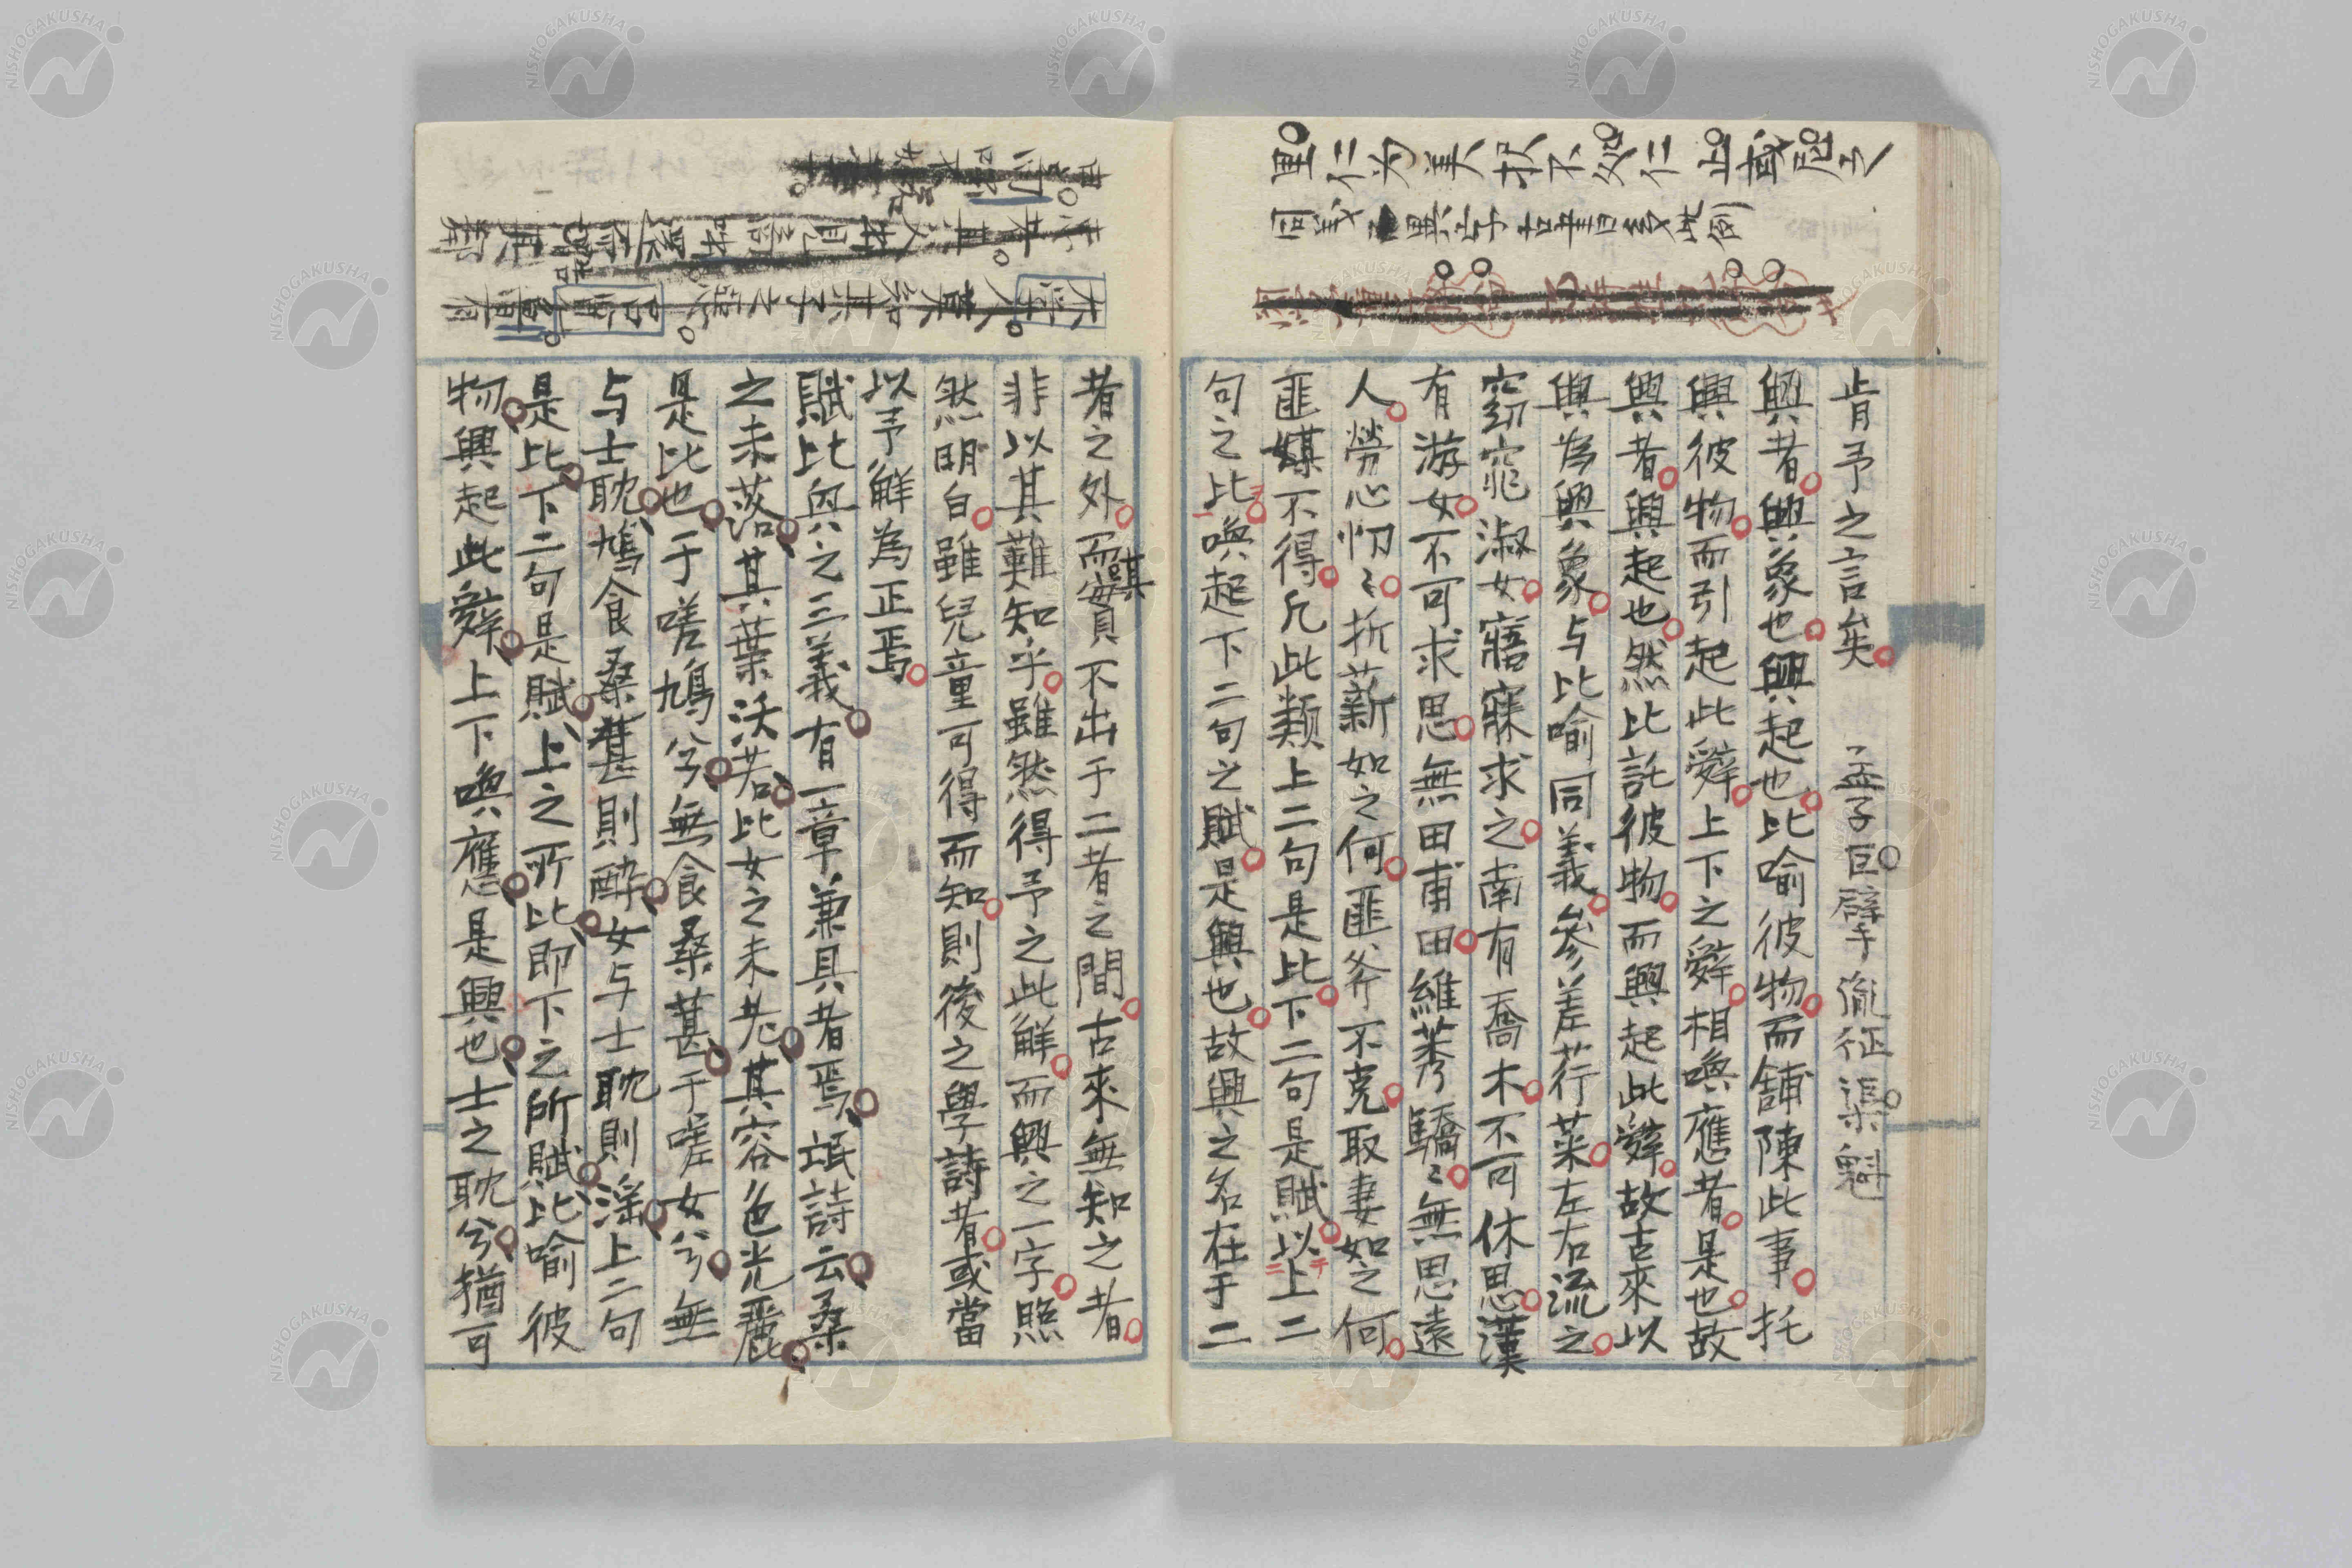 里仁为美択不処仁
肯予之言矣　孟子巨擘　胤征渠魁
興者興象也興起也比喻彼物而舗陳此事托
興彼物而引起此辤上下之辤相喚應者是也故
興者興起也然比託彼物而興起此辤故古來以
興為興象与比喻同義參差荇菜左右流之
窈窕淑女寤寐求之南有喬木不可休思漢
有游女不可求思無田甫田維莠驕〻無思遠
人勞心忉〻析薪如之何匪斧不克取妻如之何
匪媒不得凡此類上二句是比下二句是賦以上二
句之比喚起下二句之賦是興也故興之名在于二
者之外而其實不出于二者之間古來無知之者
非以其難知乎雖然得予之此解而興之一字照
然明白雖兒童可得而知則後之學詩者或當
以予解為正焉
賦比興之三義有一章兼具者焉氓詩云桑
之未落其葉沃若比女之未老其容色光麗
是比也于嗟鳩兮無食桑葚于嗟女兮無
与士耽鳩食桑葚則醉女与士耽則淫上二句
是比下二句是賦上之所比即下之所賦比喻彼
物興起此辤上下喚應是興也士之耽兮猶可